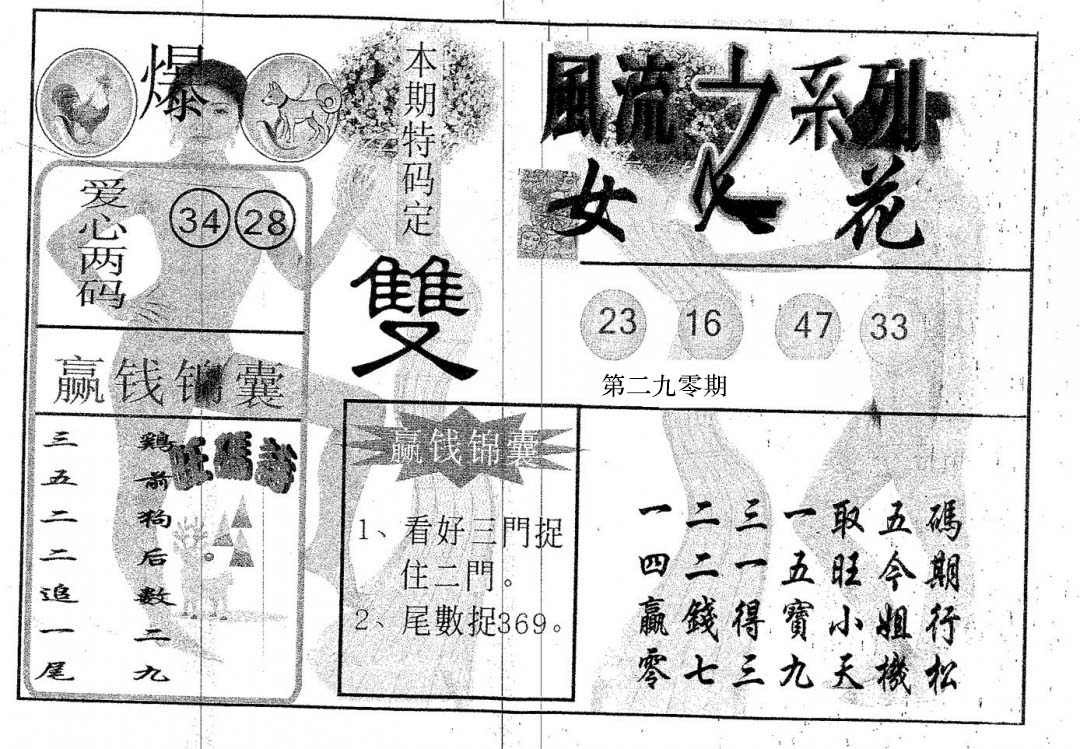 爆
爱心两码
34 28
赢钱锦囊
旺碼詩
鷄前狗后數二九
三五二二追一尾
本期特码定
雙
風流之系列
女人花
23 16 47 33
第二九零期
赢钱锦囊
1、看好三門捉
住二門。
2、尾數捉369。
一二三一取五碼
四二一五旺今期
贏錢得寶小姐行
零七三九天機松